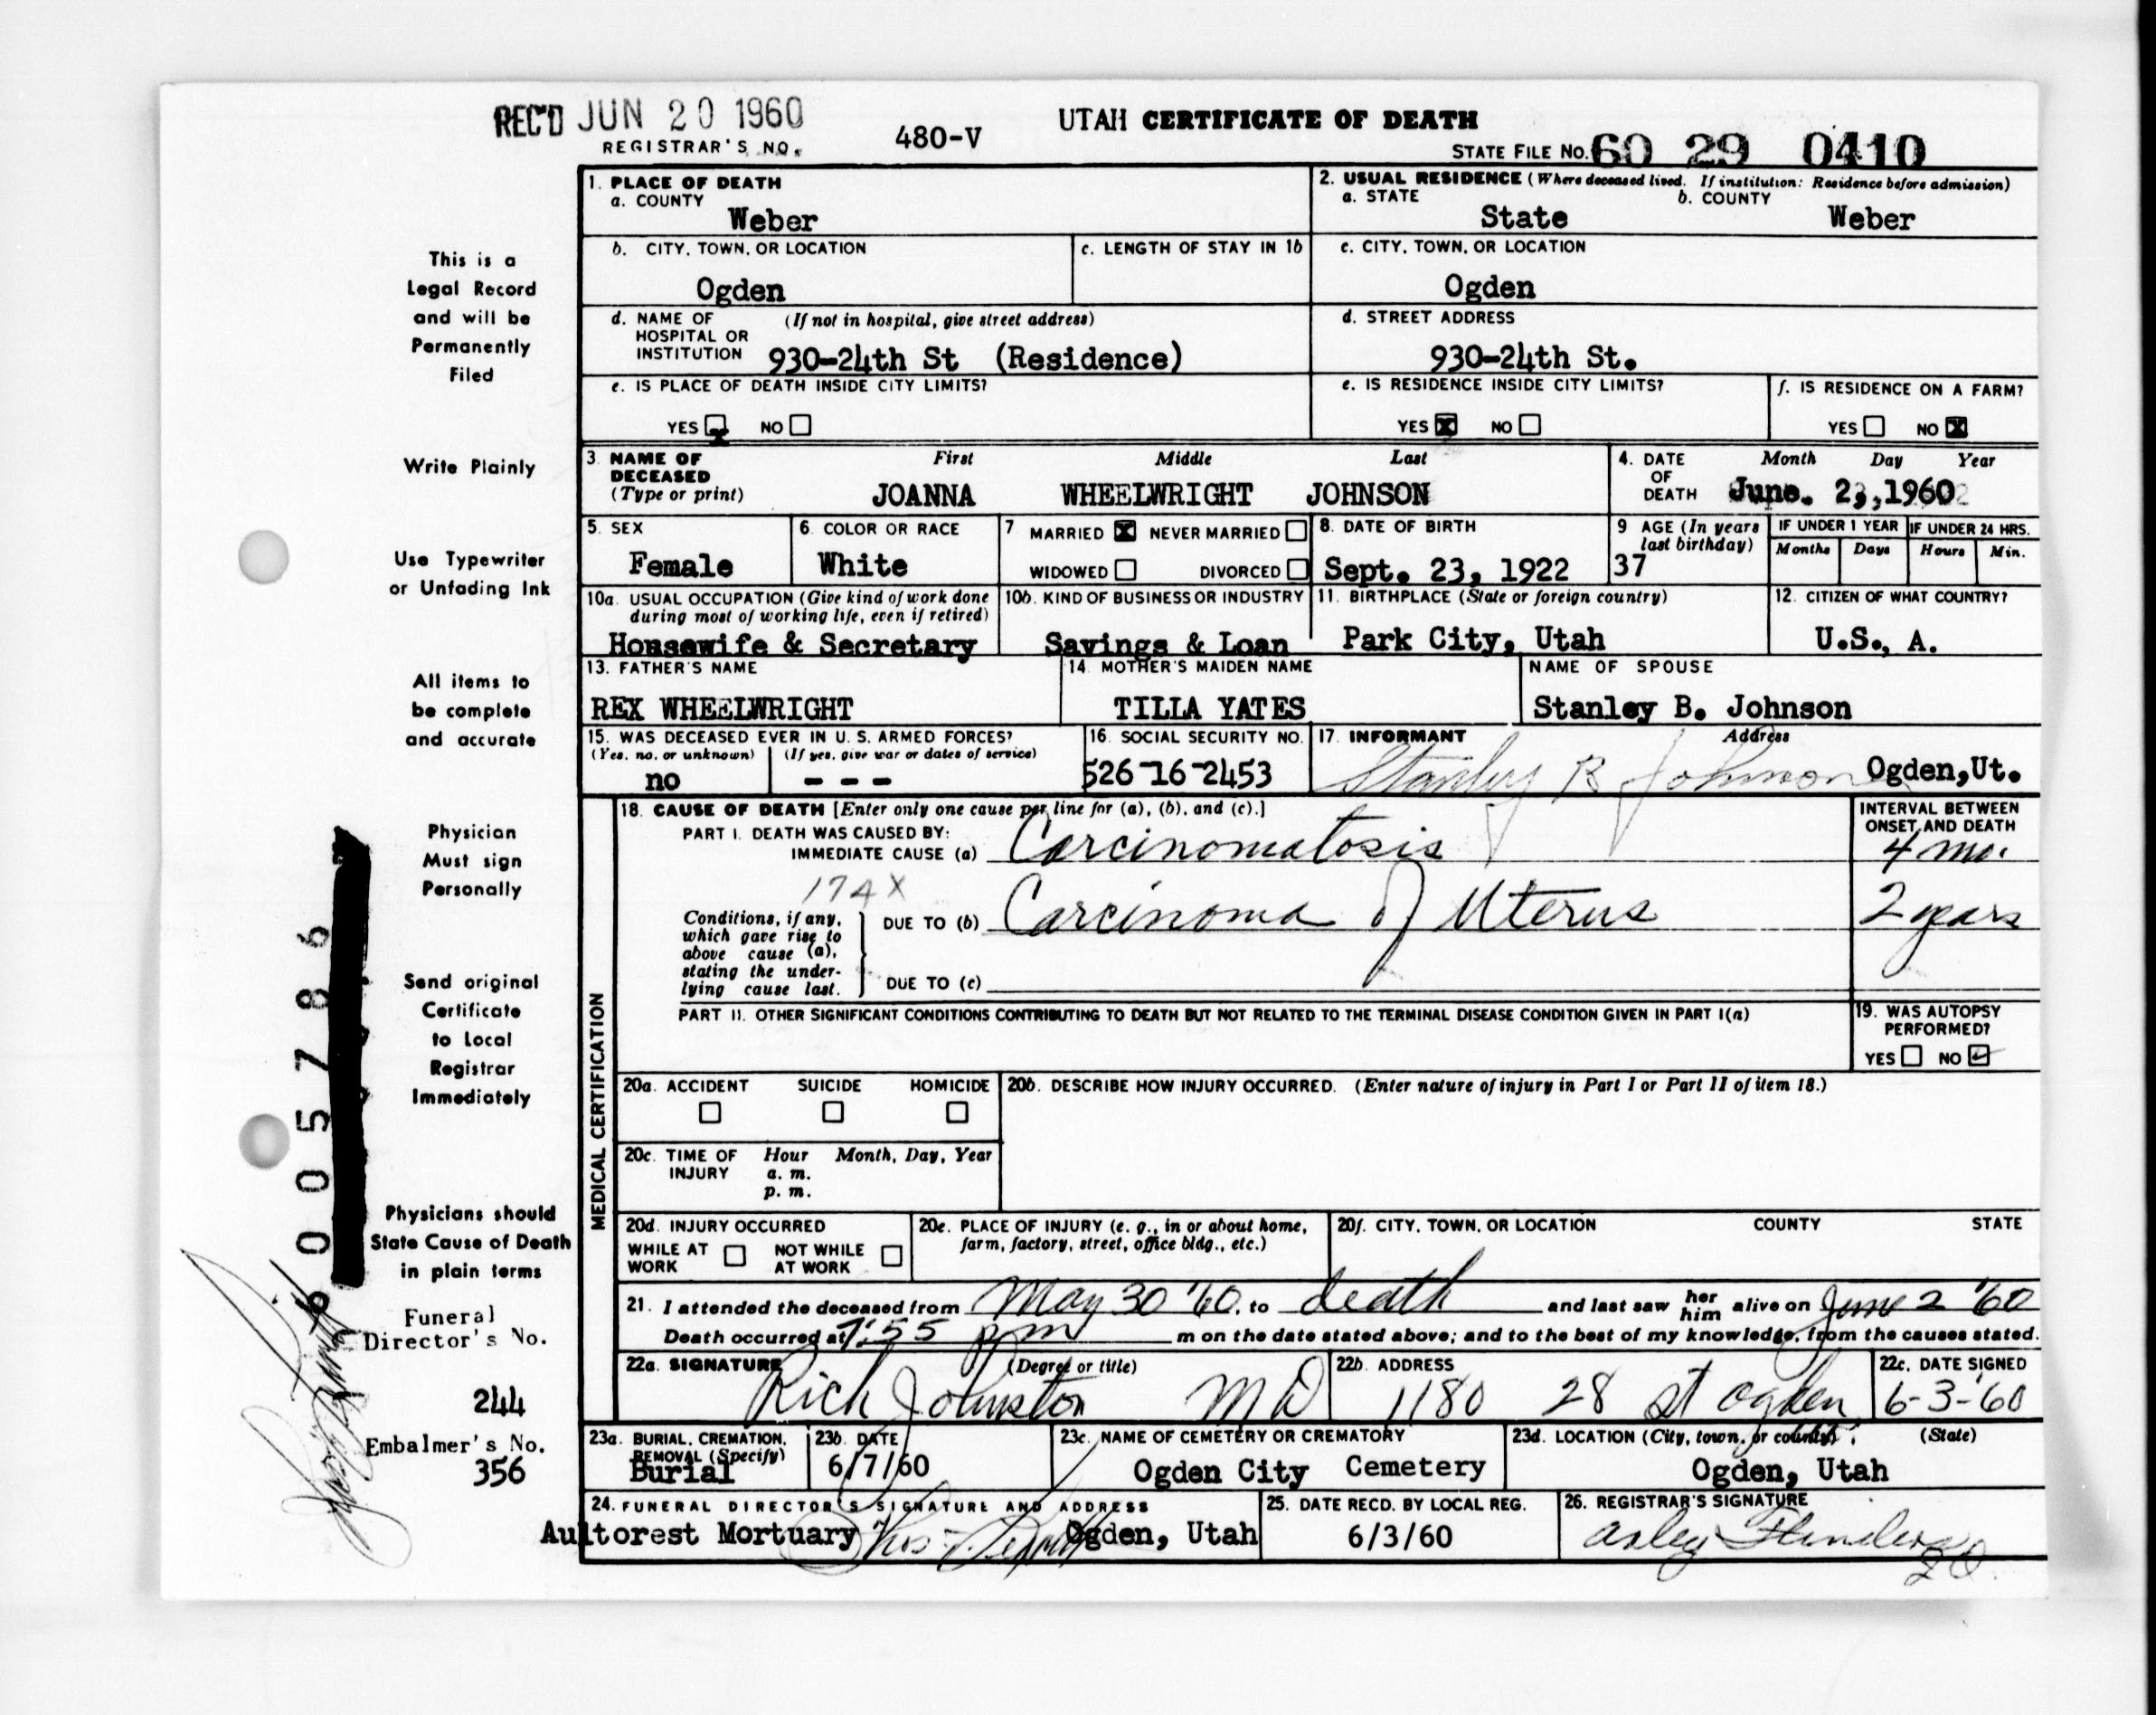 REC'D JUN 20 1960
UTAH CERTIFICATE OF DEATH
REGISTRAR'S NO. 480-V
STATE FILE NO. 60 29 0410
This is a
Legal Record
and will be
Permanently
Filed
Write Plainly
Use Typewriter
or Unfading Ink
All items to
be complete
and accurate
Physician
Must sign
Personally
Send original
Certificate
to Local
Registrar
Immediately
Physicians should
State Cause of Death
in plain terms
Funeral
Director's No.
244
Embalmer's No.
356
005786
1. PLACE OF DEATH
a. COUNTY
Weber
2. USUAL RESIDENCE (Where deceased lived. If institution: Residence before admission)
a. STATE b. COUNTY
State Weber
b. CITY, TOWN, OR LOCATION
Ogden
c. LENGTH OF STAY IN 1b
c. CITY, TOWN, OR LOCATION
Ogden
d. NAME OF (If not in hospital, give street address)
HOSPITAL OR
INSTITUTION 930-24th St (Residence)
d. STREET ADDRESS
930-24th St.
e. IS PLACE OF DEATH INSIDE CITY LIMITS?
YES X NO
e. IS RESIDENCE INSIDE CITY LIMITS?
YES X NO
f. IS RESIDENCE ON A FARM?
YES NO X
3. NAME OF DECEASED (Type or print) First Middle Last
JOANNA WHEELWRIGHT JOHNSON
4. DATE OF DEATH Month Day Year
June. 2, 1960
5. SEX
Female
6. COLOR OR RACE
White
7 MARRIED X NEVER MARRIED
WIDOWED DIVORCED
8. DATE OF BIRTH
Sept. 23, 1922
9 AGE (In years last birthday)
37
IF UNDER 1 YEAR IF UNDER 24 HRS.
Months Days Hours Min.
10a. USUAL OCCUPATION (Give kind of work done
during most of working life, even if retired)
Housewife & Secretary
10b. KIND OF BUSINESS OR INDUSTRY
Savings & Loan
11. BIRTHPLACE (State or foreign country)
Park City, Utah
12. CITIZEN OF WHAT COUNTRY?
U.S., A.
13. FATHER'S NAME
REX WHEELWRIGHT
14. MOTHER'S MAIDEN NAME
TILLA YATES
NAME OF SPOUSE
Stanley B. Johnson
15. WAS DECEASED EVER IN U. S. ARMED FORCES?
(Yes, no, or unknown) (If yes, give war or dates of service)
no - - -
16. SOCIAL SECURITY NO.
526-16-2453
17. INFORMANT Address
Stanley B Johnson Ogden, Ut.
18. CAUSE OF DEATH [Enter only one cause per line for (a), (b), and (c).]
PART I. DEATH WAS CAUSED BY:
IMMEDIATE CAUSE (a) Carcinomatosis
INTERVAL BETWEEN
ONSET AND DEATH
4 mo.
174X
Conditions, if any,
which gave rise to
above cause (a),
stating the under-
lying cause last.
DUE TO (b) Carcinoma of Uterus 2 years
DUE TO (c)
PART II. OTHER SIGNIFICANT CONDITIONS CONTRIBUTING TO DEATH BUT NOT RELATED TO THE TERMINAL DISEASE CONDITION GIVEN IN PART I(a)
19. WAS AUTOPSY
PERFORMED?
YES NO ✓
MEDICAL CERTIFICATION
20a. ACCIDENT SUICIDE HOMICIDE
20b. DESCRIBE HOW INJURY OCCURRED. (Enter nature of injury in Part I or Part II of item 18.)
20c. TIME OF INJURY Hour Month, Day, Year
a. m.
p. m.
20d. INJURY OCCURRED
WHILE AT WORK NOT WHILE AT WORK
20e. PLACE OF INJURY (e. g., in or about home,
farm, factory, street, office bldg., etc.)
20f. CITY, TOWN, OR LOCATION COUNTY STATE
21. I attended the deceased from May 30 '60, to death and last saw her him alive on June 2 '60
Death occurred at 7:55 pm m on the date stated above; and to the best of my knowledge, from the causes stated.
22a. SIGNATURE (Degree or title)
Rich Johnston MD
22b. ADDRESS
1180 28 st Ogden
22c. DATE SIGNED
6-3-'60
23a. BURIAL, CREMATION,
REMOVAL (Specify)
Burial
23b. DATE
6/7/60
23c. NAME OF CEMETERY OR CREMATORY
Ogden City Cemetery
23d. LOCATION (City, town, or county) (State)
Ogden, Utah
24. FUNERAL DIRECTOR'S SIGNATURE AND ADDRESS
Aultorest Mortuary Ogden, Utah
25. DATE RECD. BY LOCAL REG.
6/3/60
26. REGISTRAR'S SIGNATURE